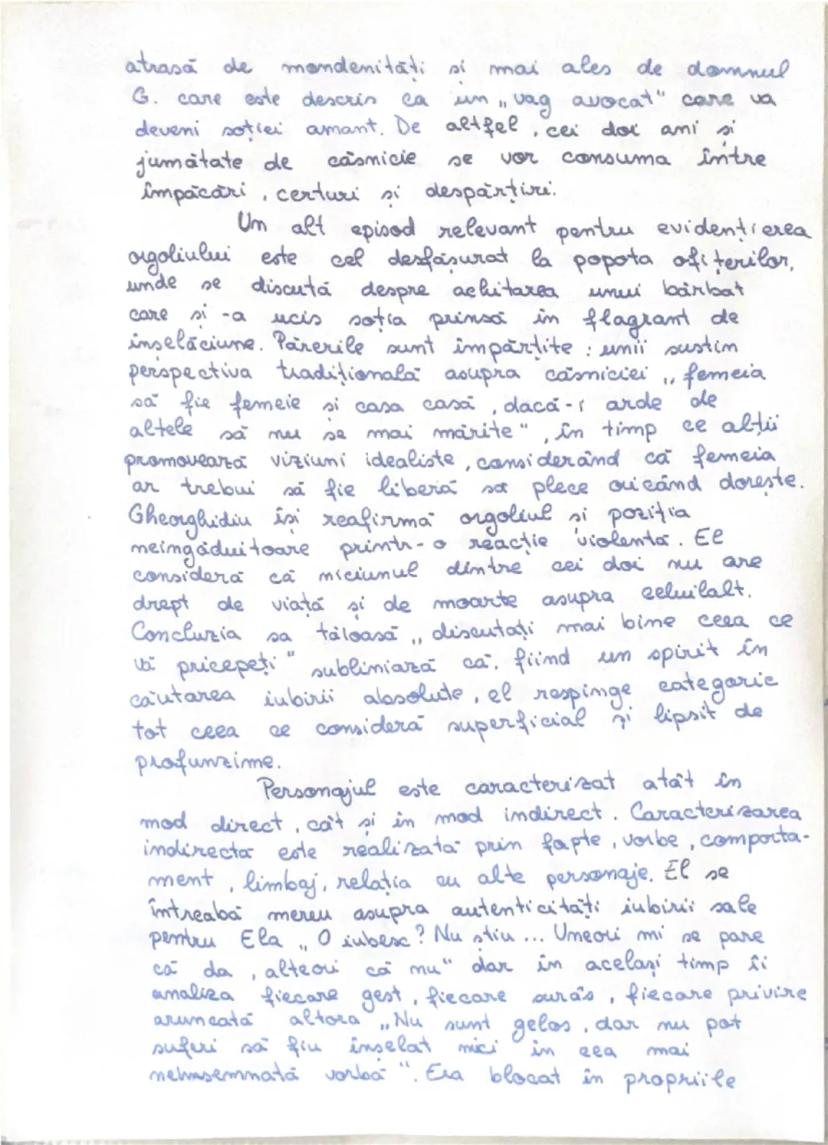 atrasă de mondenități și mai ales de domnul
G. care este descris ca un „vag avocat" care va
deveni soției amant. De altfel, cei doi ani și
jumătate de căsnicie se vor consuma între
împăcări, certuri și despărțiri.
Un alt episod relevant pentru evidențierea
orgoliului este cel desfășurat la popota ofițerilor,
unde se discută despre achitarea unui bărbat
care și-a ucis soția prinsă în flagrant de
înșelăciune. Părerile sunt împărțite: unii susțin
perspectiva tradițională asupra căsniciei „femeia
să fie femeie și casa casă, dacă-i arde de
altele să nu se mai mărite", în timp ce alții
promovează viziuni idealiste, considerând că femeia
ar trebui să fie liberă să plece oricând dorește.
Gheorghidiu își reafirmă orgoliul și poziția
neîngăduitoare printr-o reacție violentă. El
consideră că niciunul dintre cei doi nu are
drept de viață și de moarte asupra celuilalt.
Concluzia sa tăioasă „discutați mai bine ceea ce
vă pricepeți" subliniază că, fiind un spirit în
căutarea iubirii absolute, el respinge categoric
tot ceea ce consideră superficial și lipsit de
profunzime.
Personajul este caracterizat atât în
mod direct, cât și în mod indirect. Caracterizarea
indirectă este realizată prin fapte, vorbe, comporta-
ment, limbaj, relația cu alte personaje. El se
întreabă mereu asupra autenticități iubirii sale
pentru Ela „O iubesc? Nu știu... Uneori mi se pare
că da, alteori că nu" dar în același timp îi
analiza fiecare gest, fiecare surâs, fiecare privire
aruncată altora „Nu sunt gelos, dar nu pot
suferi să fiu înșelat nici în cea mai
neînsemnată vorbă". Era blocat în propriile